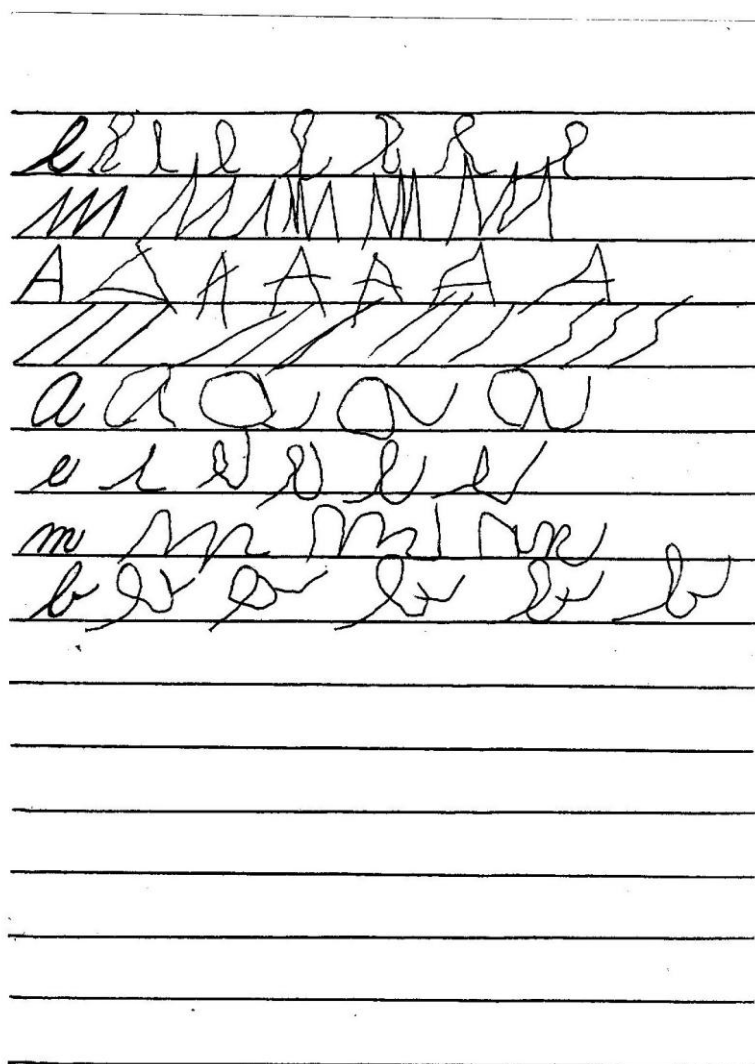 l l l l l l l l
M M M M M M
A A A A A A A
/ / / / / / / / / / / / /
a a a a a
e e e e e e
m m m m
b b b b b b